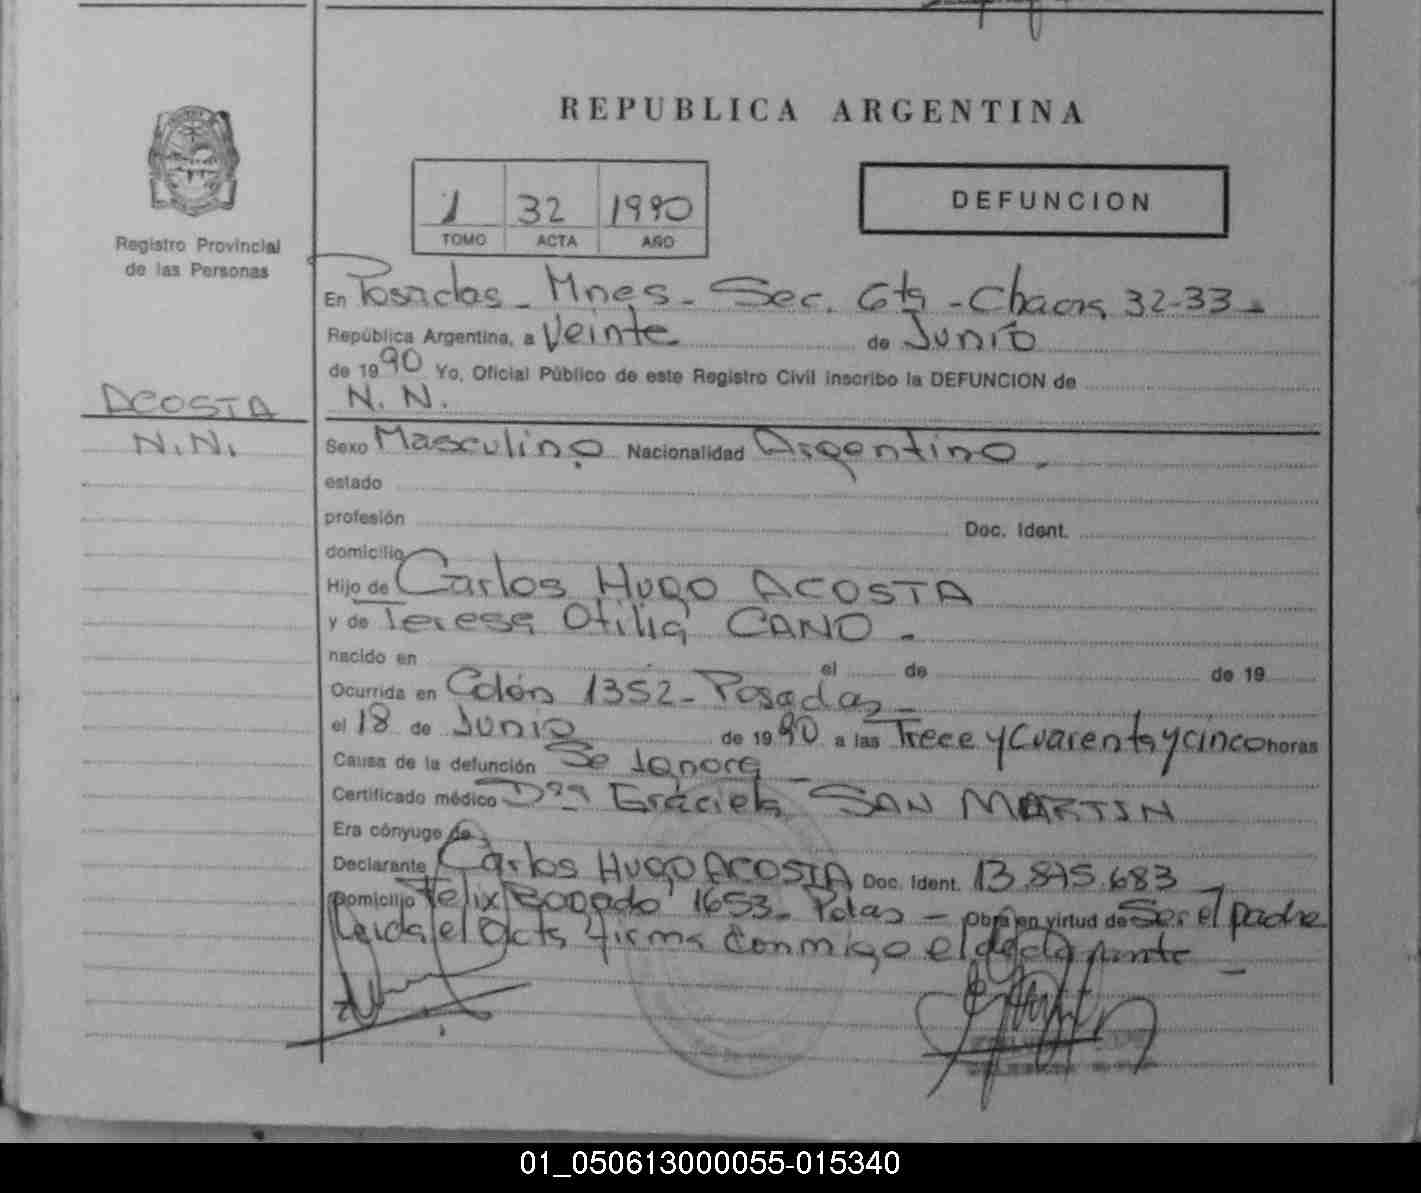 REPUBLICA ARGENTINA
1 32 1990
TOMO ACTA AÑO
DEFUNCION
Registro Provincial
de las Personas
ACOSTA
N.N.
En Posadas - Mnes - Sec. 6ta - Chacra 32-33 -
República Argentina, a Veinte de Junio
de 1990 Yo, Oficial Público de este Registro Civil inscribo la DEFUNCION de
N. N.
Sexo Masculino Nacionalidad Argentino
estado
profesión Doc. Ident.
domicilio
Hijo de Carlos Hugo ACOSTA
y de Teresa Otilia CANO -
nacido en el de de 19
Ocurrida en Colón 1352 - Posadas -
el 18 de Junio de 1990 a las Trece y Cuarenta y cinco horas
Causa de la defunción Se Ignora -
Certificado médico Dra Graciela SAN MARTIN
Era cónyuge de
Declarante Carlos Hugo ACOSTA Doc. Ident. 13.875.683 -
Domicilio Felix Bogado 1653 - Pdas - Obra en virtud de Ser el padre
Leida el Acta firma conmigo el declarante -
01_050613000055-015340